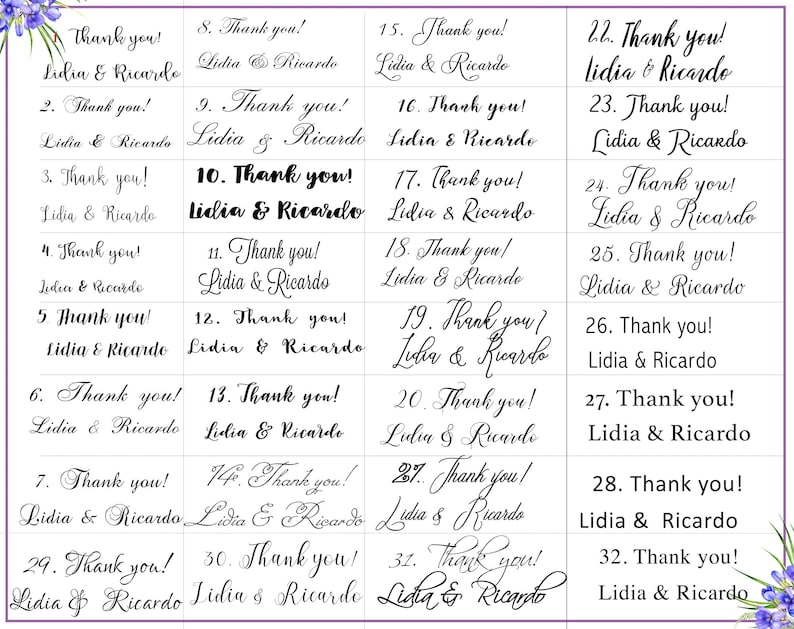 1. Thank you!
Lidia & Ricardo
2. Thank you!
Lidia & Ricardo
3. Thank you!
Lidia & Ricardo
4. Thank you!
Lidia & Ricardo
5. Thank you!
Lidia & Ricardo
6. Thank you!
Lidia & Ricardo
7. Thank you!
Lidia & Ricardo
29. Thank you!
Lidia & Ricardo
8. Thank you!
Lidia & Ricardo
9. Thank you!
Lidia & Ricardo
10. Thank you!
Lidia & Ricardo
11. Thank you!
Lidia & Ricardo
12. Thank you!
Lidia & Ricardo
13. Thank you!
Lidia & Ricardo
14. Thank you!
Lidia & Ricardo
30. Thank you!
Lidia & Ricardo
15. Thank you!
Lidia & Ricardo
16. Thank you!
Lidia & Ricardo
17. Thank you!
Lidia & Ricardo
18. Thank you!
Lidia & Ricardo
19. Thank you?
Lidia & Ricardo
20. Thank you!
Lidia & Ricardo
27. Thank you!
Lidia & Ricardo
31. Thank you!
Lidia & Ricardo
22. Thank you!
Lidia & Ricardo
23. Thank you!
Lidia & Ricardo
24. Thank you!
Lidia & Ricardo
25. Thank you!
Lidia & Ricardo
26. Thank you!
Lidia & Ricardo
27. Thank you!
Lidia & Ricardo
28. Thank you!
Lidia & Ricardo
32. Thank you!
Lidia & Ricardo